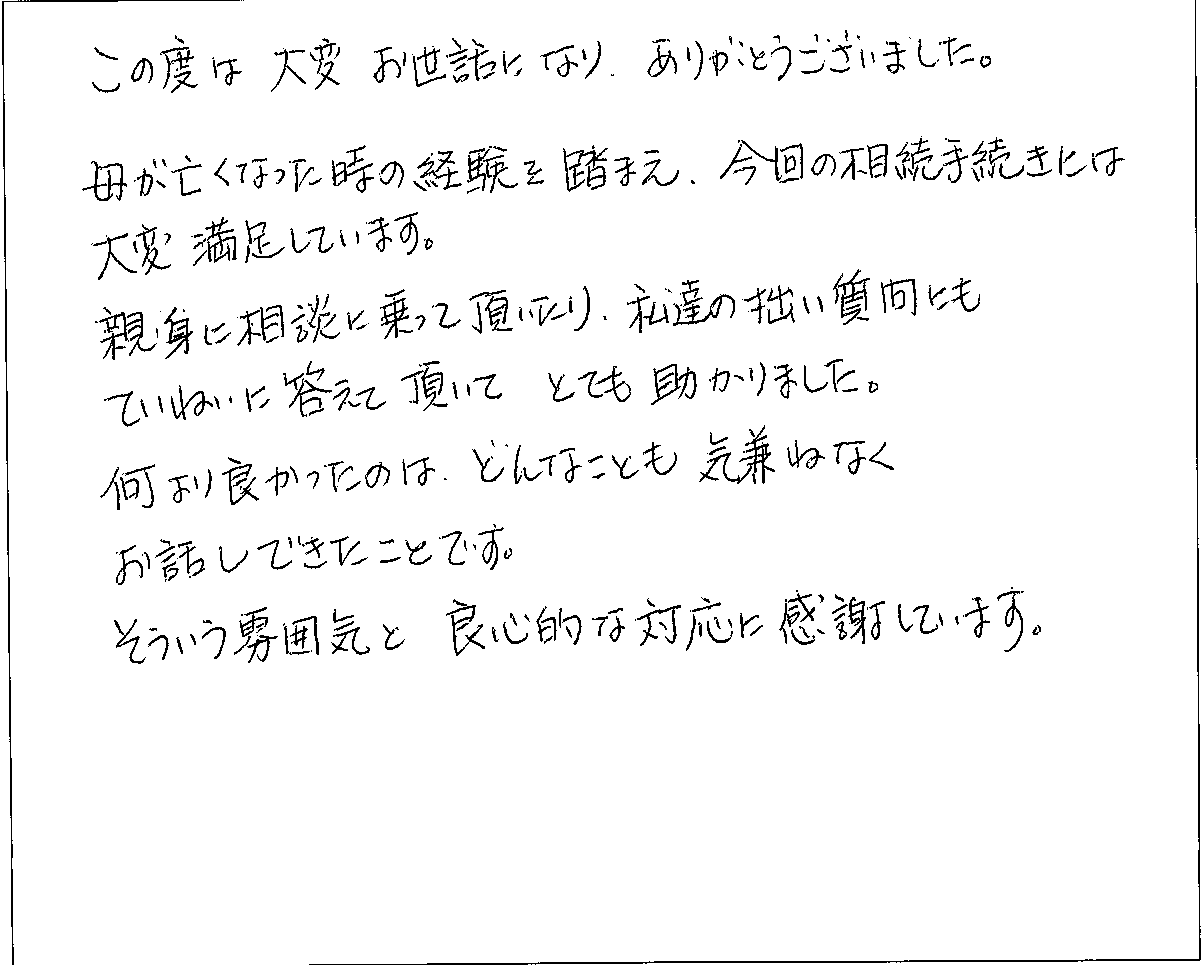 この度は 大変 お世話になり、ありがとうございました。
母が亡くなった時の経験を踏まえ、今回の相続手続きには
大変 満足しています。
親身に相談に乗って頂いたり、私達の拙い質問にも
ていねいに答えて頂いて とても助かりました。
何より良かったのは、どんなことも気兼ねなく
お話しできたことです。
そういう雰囲気と 良心的な対応に感謝しています。